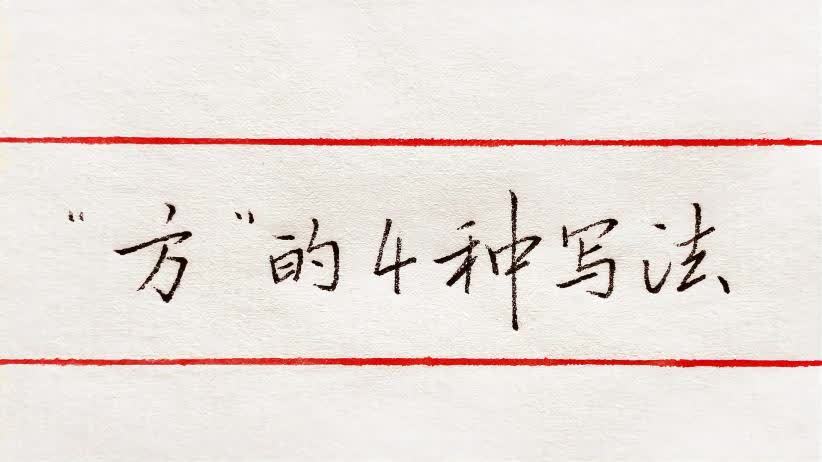 “方”的4种写法